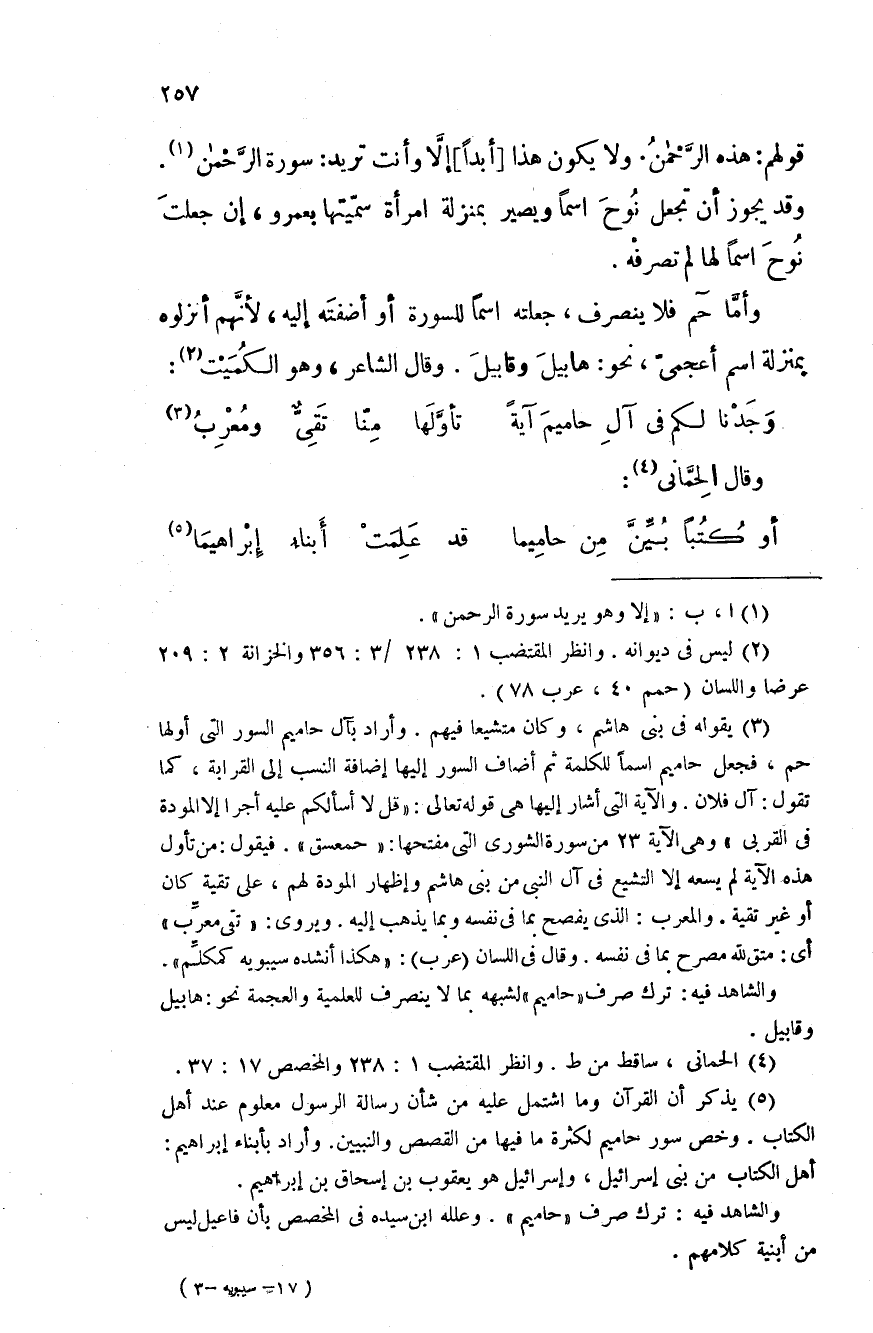 ٢٥٧
قولهم: هذه الرَّحْمٰنُ. ولا يكون هذا [أبداً] إلَّا وأنت تريد: سورة الرَّحْمٰن (١).
وقد يجوز أن تجعل نُوحَ اسماً ويصير بمنزلة امرأة سمّيتَها بعمرو، إن جعلتَ
نُوحَ اسماً لها لم تصرفْه .
وأمَّا حَم فلا ينصرف، جعلته اسماً للسورة أو أضفتَه إليه، لأنَّهم أنزلوه
بمنزلة اسم أعجمىّ، نحو: هابيلَ وقابيلَ . وقال الشاعر، وهو الكُمَيْت(٢):
وَجَدْنا لكم فى آلِ حاميمَ آيةً تأوَّلَها مِنّا تَقِىٌّ ومُعْرِبُ(٣)
وقال الحِمَّانى(٤):
أو كُتُباً بُيِّنَّ مِن حامِيما قد عَلِمَتْ أبناء إبْراهيمَا(٥)
(١) ا ، ب : « إلا وهو يريد سورة الرحمن » .
(٢) ليس فى ديوانه . وانظر المقتضب ١ : ٢٣٨ / ٣ : ٣٥٦ والخزانة ٢ : ٢٠٩
عرضا واللسان ( حمم ٤٠ ، عرب ٧٨ ) .
(٣) يقوله فى بنى هاشم ، وكان متشيعا فيهم . وأراد بآل حاميم السور التى أولها
حم ، فجعل حاميم اسماً للكلمة ثم أضاف السور إليها إضافة النسب إلى القرابة ، كما
تقول : آل فلان . والآية التى أشار إليها هى قوله تعالى : « قل لا أسألكم عليه أجرا إلا المودة
فى القربى » وهى الآية ٢٣ من سورة الشورى التى مفتحها: « حمعسق » . فيقول : من تأول
هذه الآية لم يسعه إلا التشيع فى آل النبى من بنى هاشم وإظهار المودة لهم ، على تقية كان
أو غير تقية . والمعرب : الذى يفصح بما فى نفسه وبما يذهب إليه . ويروى : « تقى معرِّب »
أى : متق لله مصرح بما فى نفسه . وقال فى اللسان (عرب) : « هكذا أنشده سيبويه كمكلِّم» .
والشاهد فيه : ترك صرف « حاميم » لشبهه بما لا ينصرف للعلمية والعجمة نحو : هابيل
وقابيل .
(٤) الحمانى ، ساقط من ط . وانظر المقتضب ١ : ٢٣٨ والمخصص ١٧ : ٣٧ .
(٥) يذكر أن القرآن وما اشتمل عليه من شأن رسالة الرسول معلوم عند أهل
الكتاب . وخص سور حاميم لكثرة ما فيها من القصص والنبيين . وأراد بأبناء إبراهيم :
أهل الكتاب من بنى إسرائيل ، وإسرائيل هو يعقوب بن إسحاق بن إبراهيم .
والشاهد فيه : ترك صرف « حاميم » . وعلله ابن سيده فى المخصص بأن فاعيل ليس
من أبنية كلامهم .
( ١٧ – سيبويه – ٣ )